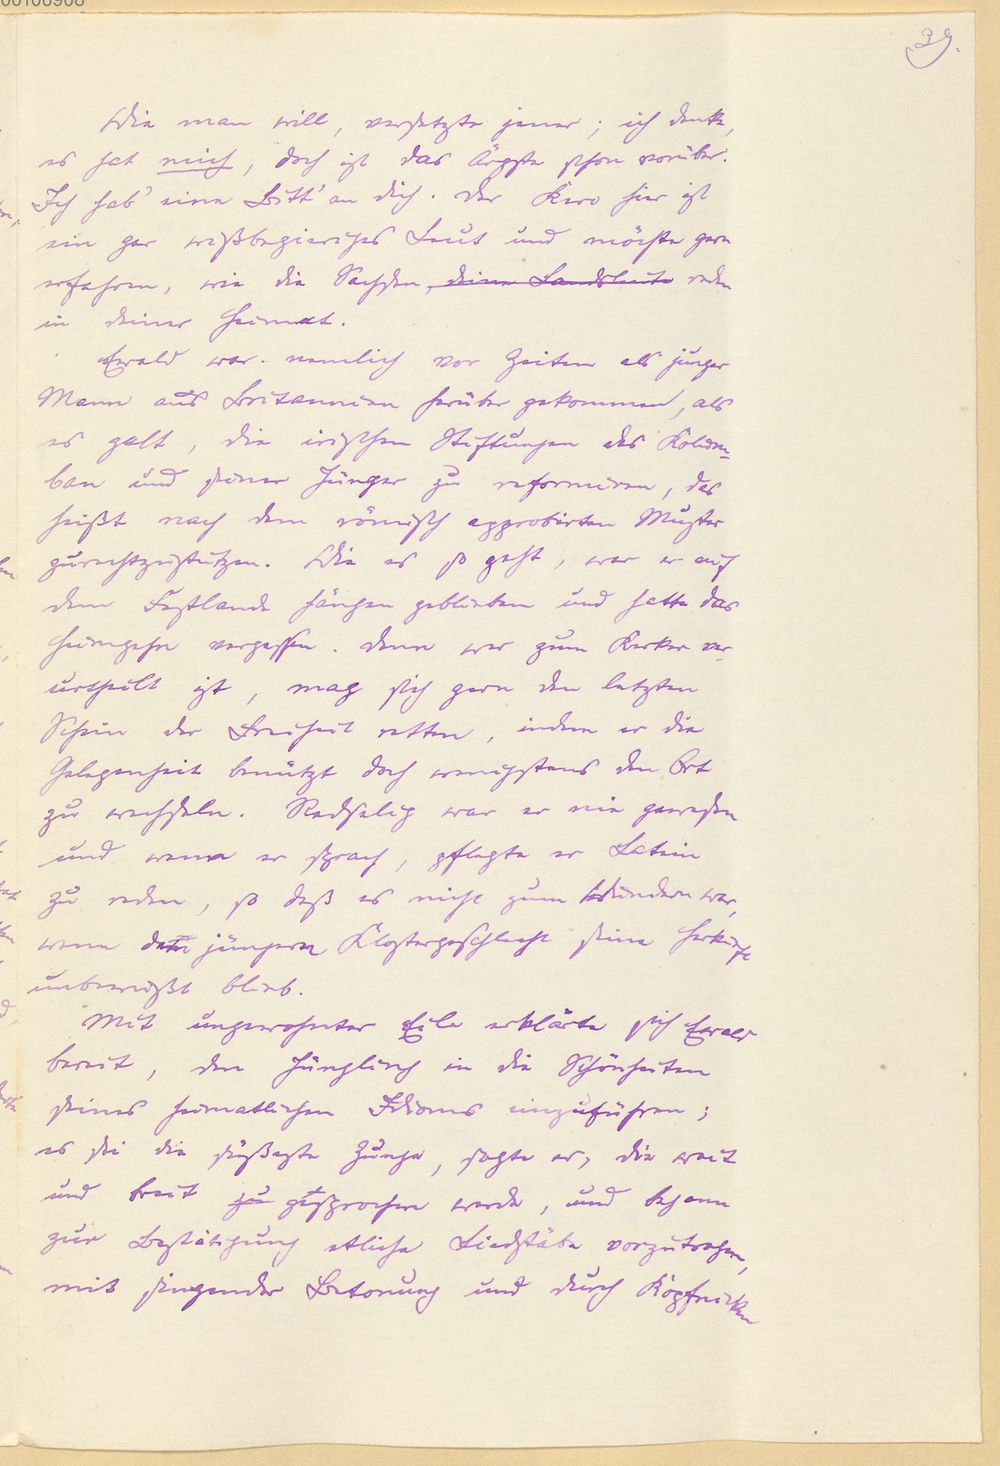 00106908
39.
Wie man will, versetzte jener; ich denke,
es hat mich, doch ist das Ärgste schon vorüber.
Ich hab' eine Bitt' an dich. Der Kero hier ist
ein gar wißbegieriges Leut und möchte gern
erfahren, wie die Sachsen, deine Landsleute reden
in deiner Heimat.
Ewald war nemlich vor Zeiten als junger
Mann aus Britannien herüber gekommen, als
es galt, die irischen Stiftungen des Kolum-
ban und seiner Jünger zu reformiren, das
heißt nach dem römisch approbirten Muster
zurechtzustutzen. Wie es so geht, war er auf
dem Festlande hängen geblieben und hatte das
Heimgehn vergessen. Denn wer zum Kerker ver-
urtheilt ist, mag sich gern den letzten
Schein der Freiheit retten, indem er die
Gelegenheit benützt doch wenigstens den Ort
zu wechseln. Redselig war er nie gewesen
und wenn er sprach, pflegte er Latein
zu reden, so daß es nicht zum Wundern war,
wenn dem jüngern Klostergeschlecht seine Herkunft
unbewußt blieb.
Mit ungewohnter Eile erklärte sich Ewald
bereit, den Jüngling in die Schönheiten
seines heimatlichen Idioms einzuführen;
es sei die süßeste Zunge, sagte er, die weit
und breit zu gesprochen werde, und begann
zur Bestätigung etliche Liedstäbe vorzutragen,
mit singender Betonung und durch Kopfnicken